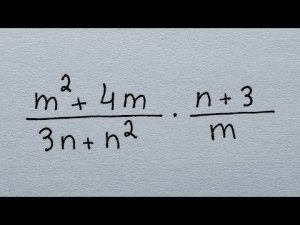 m² + 4m / 3n + n² · n + 3 / m